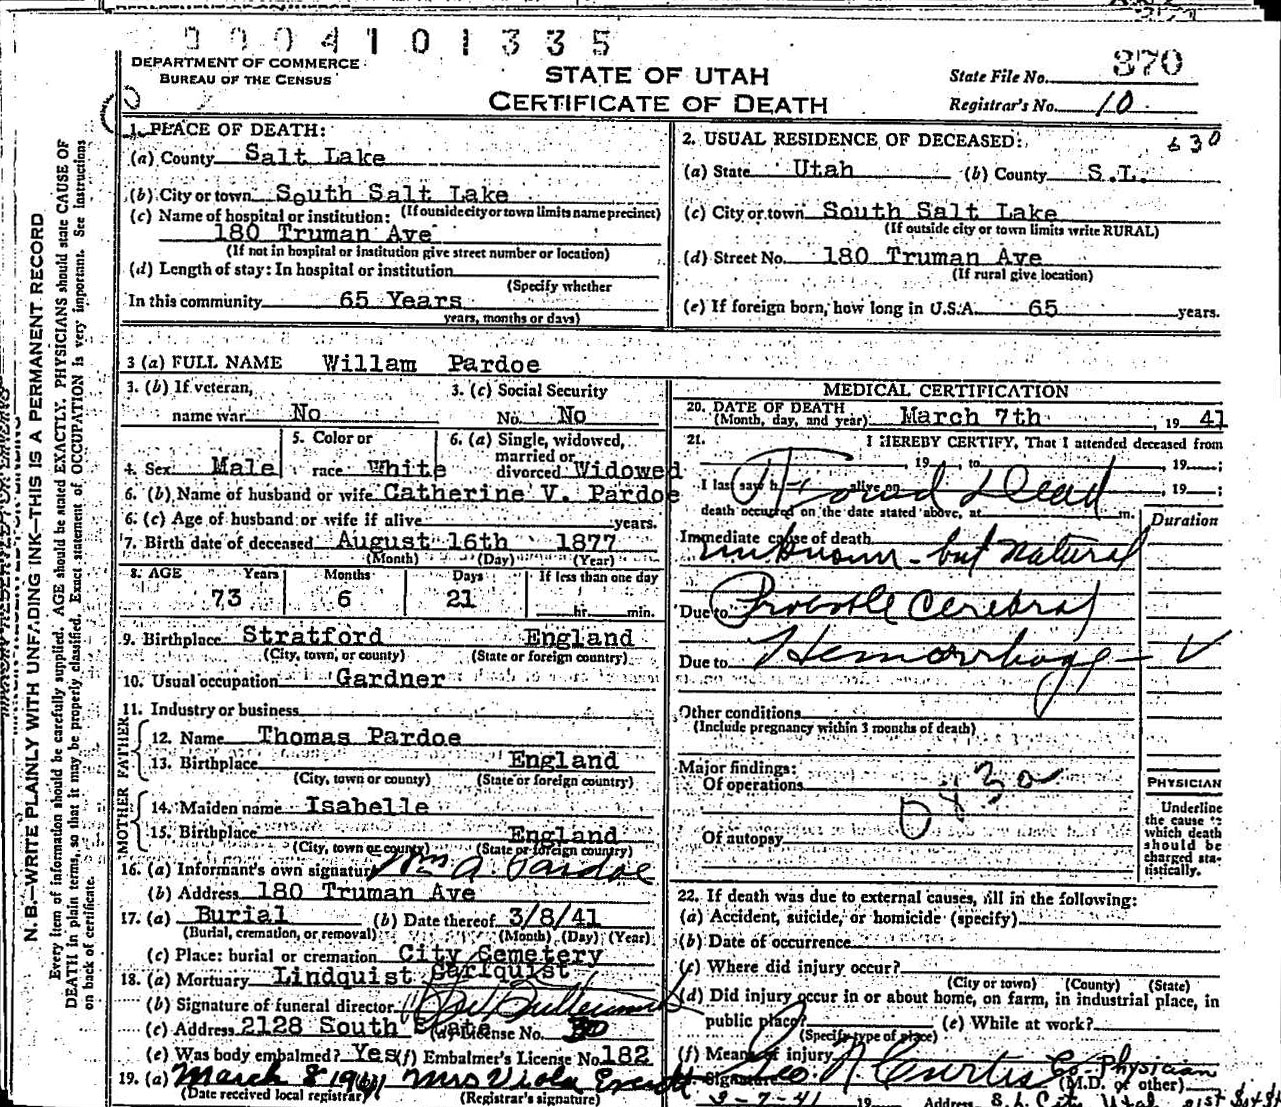 3 0 0 4 1 0 1 3 3 5
DEPARTMENT OF COMMERCE
BUREAU OF THE CENSUS
STATE OF UTAH
CERTIFICATE OF DEATH
State File No. 370
Registrar's No. 10
1. PLACE OF DEATH:
(a) County Salt Lake
(b) City or town South Salt Lake
(If outside city or town limits name precinct)
(c) Name of hospital or institution:
180 Truman Ave
(If not in hospital or institution give street number or location)
(d) Length of stay: In hospital or institution
(Specify whether
In this community 65 Years
years, months or days)
2. USUAL RESIDENCE OF DECEASED: 630
(a) State Utah (b) County S.L.
(c) City or town South Salt Lake
(If outside city or town limits write RURAL)
(d) Street No. 180 Truman Ave
(If rural give location)
(e) If foreign born, how long in U.S.A. 65 years.
3 (a) FULL NAME Willam Pardoe
3. (b) If veteran, name war No
3. (c) Social Security No. No
4. Sex Male
5. Color or race White
6. (a) Single, widowed, married or divorced Widowed
6. (b) Name of husband or wife Catherine V. Pardoe
6. (c) Age of husband or wife if alive years.
7. Birth date of deceased August 16th 1877
(Month) (Day) (Year)
8. AGE Years Months Days If less than one day
73 6 21 hr. min.
9. Birthplace Stratford England
(City, town, or county) (State or foreign country)
10. Usual occupation Gardner
11. Industry or business
FATHER
12. Name Thomas Pardoe
13. Birthplace England
(City, town or county) (State or foreign country)
MOTHER
14. Maiden name Isabelle
15. Birthplace England
(City, town or county) (State or foreign country)
16. (a) Informant's own signature Wm A. Pardoe
(b) Address 180 Truman Ave
17. (a) Burial (b) Date thereof 3/8/41
(Burial, cremation, or removal) (Month) (Day) (Year)
(c) Place: burial or cremation City Cemetery
18. (a) Mortuary Lindquist Carlquist
(b) Signature of funeral director
(c) Address 2128 South State (d) License No. 30
(e) Was body embalmed? Yes (f) Embalmer's License No. 182
19. (a) March 8 1941 Mrs Viola
(Date received local registrar) (Registrar's signature)
MEDICAL CERTIFICATION
20. DATE OF DEATH
(Month, day, and year) March 7th, 19 41
21. I HEREBY CERTIFY, That I attended deceased from
, 19 , to , 19 ;
I last saw h alive on , 19 ;
Found Dead
death occurred on the date stated above, at m.
Duration
Immediate cause of death
unknown - but natural
Due to Probable Cerebral
Due to Hemorrhage -
Other conditions
(Include pregnancy within 3 months of death)
Major findings:
Of operations
Of autopsy
PHYSICIAN
Underline
the cause to
which death
should be
charged sta-
tistically.
22. If death was due to external causes, fill in the following:
(a) Accident, suicide, or homicide (specify)
(b) Date of occurrence
(c) Where did injury occur?
(City or town) (County) (State)
(d) Did injury occur in or about home, on farm, in industrial place, in
public place? (e) While at work?
(Specify type of place)
(f) Means of injury
Signature Geo. N. Curtis Co-Physician
(M.D. or other)
3-7-41 19 Address S.L. City Utah
N. B.—WRITE PLAINLY WITH UNFADING INK—THIS IS A PERMANENT RECORD
Every item of information should be carefully supplied. AGE should be stated EXACTLY. PHYSICIANS should state CAUSE OF
DEATH in plain terms, so that it may be properly classified. Exact statement of OCCUPATION is very important. See instructions
on back of certificate.